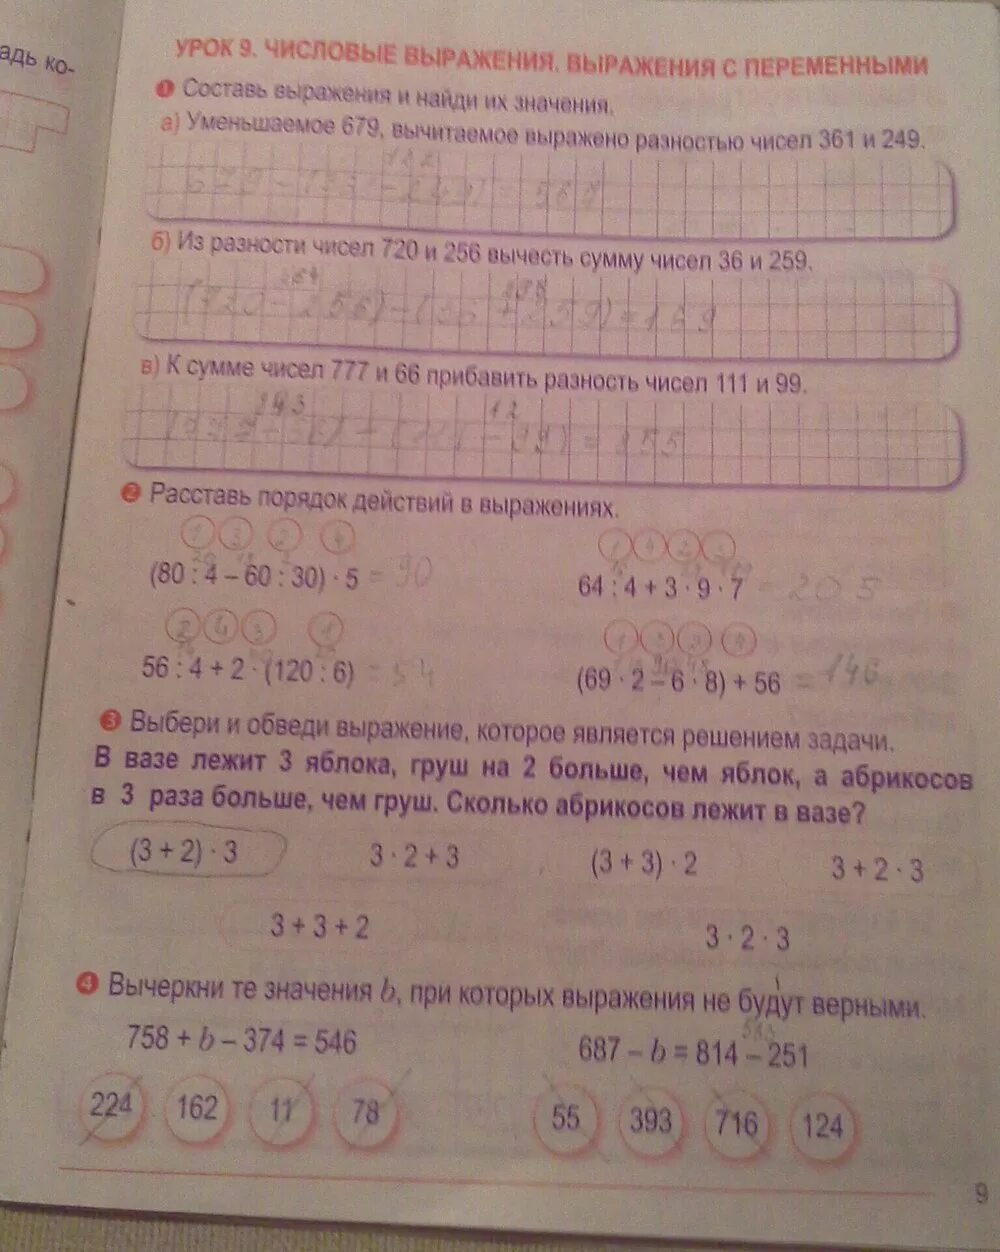 адь ко-
УРОК 9. ЧИСЛОВЫЕ ВЫРАЖЕНИЯ. ВЫРАЖЕНИЯ С ПЕРЕМЕННЫМИ
1 Составь выражения и найди их значения.
а) Уменьшаемое 679, вычитаемое выражено разностью чисел 361 и 249.
= 567
б) Из разности чисел 720 и 256 вычесть сумму чисел 36 и 259.
(720 - 256) - (36 + 259) = 169
в) К сумме чисел 777 и 66 прибавить разность чисел 111 и 99.
843 12
= 855
2 Расставь порядок действий в выражениях.
1 3 2 4
1 4 2 3
(80 : 4 – 60 : 30) · 5 = 90
64 : 4 + 3 · 9 · 7 = 205
2 4 3 1
1 3 2 4
56 : 4 + 2 · (120 : 6) = 54
(69 · 2 – 6 · 8) + 56 = 146
3 Выбери и обведи выражение, которое является решением задачи.
В вазе лежит 3 яблока, груш на 2 больше, чем яблок, а абрикосов
в 3 раза больше, чем груш. Сколько абрикосов лежит в вазе?
(3 + 2) · 3 3 · 2 + 3 (3 + 3) · 2 3 + 2 · 3
3 + 3 + 2 3 · 2 · 3
4 Вычеркни те значения b, при которых выражения не будут верными.
758 + b – 374 = 546 687 – b = 814 – 251
224 162 11 78 55 393 716 124
9